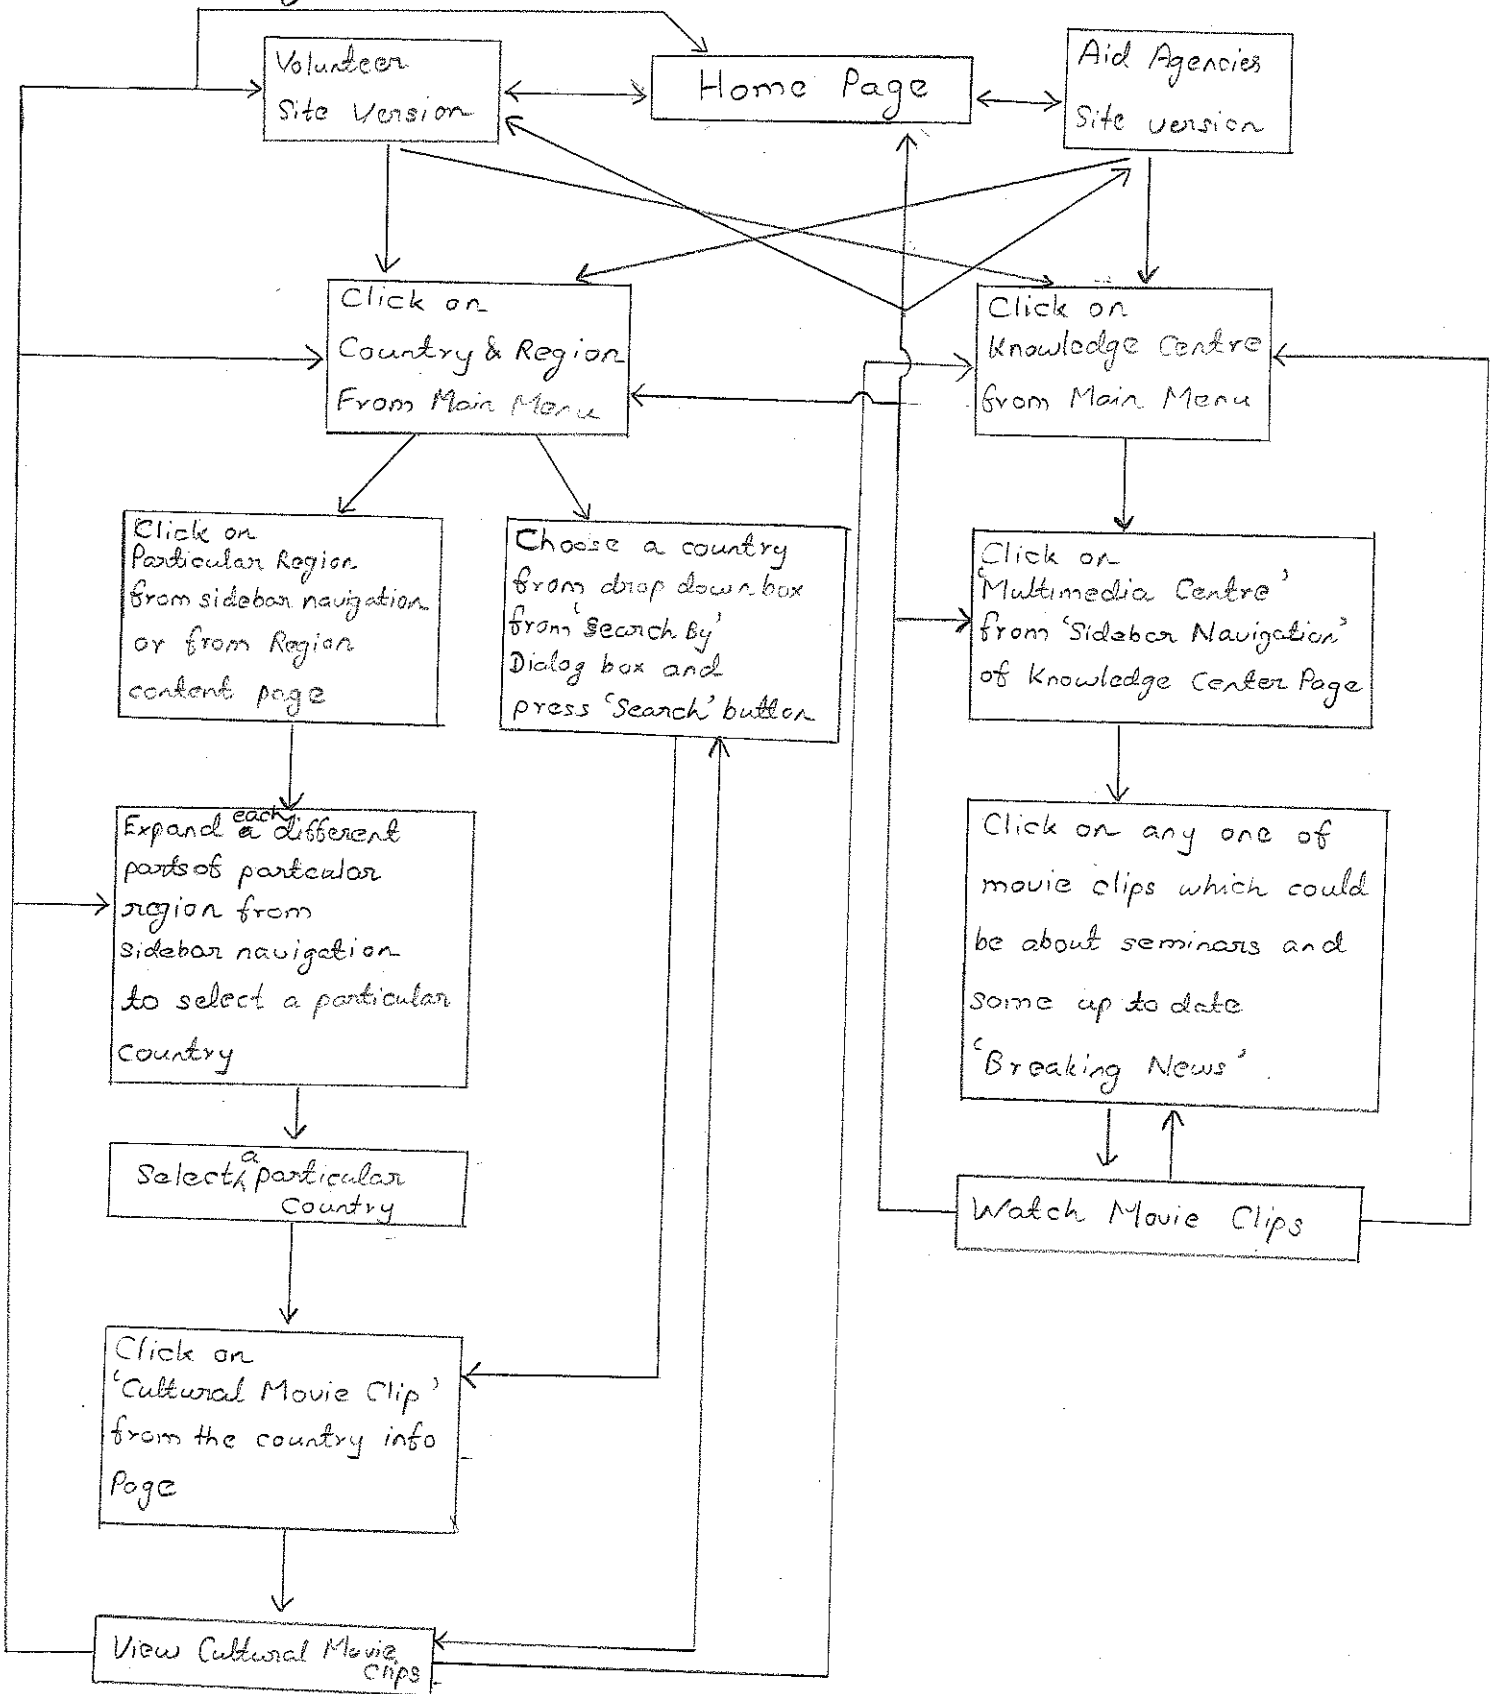 Volunteer
Site Version
Home Page
Aid Agencies
Site version
Click on
Country & Region
From Main Menu
Click on
Knowledge Centre
from Main Menu
Click on
Particular Region
from sidebar navigation
or from Region
content page
Choose a country
from drop down box
from 'Search By'
Dialog box and
press 'Search' button
Click on
'Multimedia Centre'
from 'Sidebar Navigation'
of Knowledge Center Page
Expand each different
parts of partcular
region from
sidebar navigation
to select a particular
Country
Click on any one of
movie clips which could
be about seminars and
some up to date
'Breaking News'
Select a particular
Country
Watch Movie Clips
Click on
'Cultural Movie Clip'
from the country info
Page
View Cultural Movie
Clips